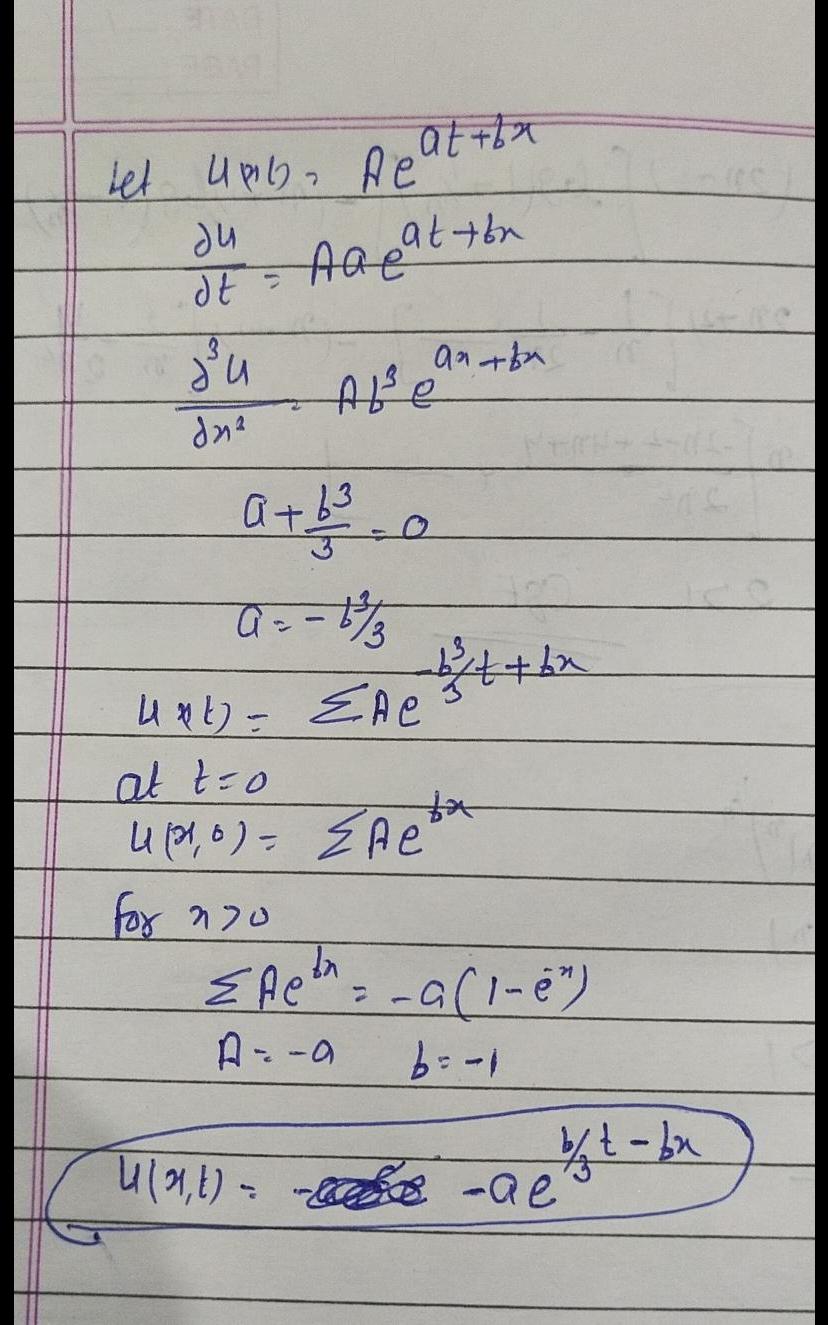 let u(x,t) = Ae^{at+bx}
∂u/∂t = Aae^{at+bx}
∂³u/∂x³ = Ab³e^{ax+bx}
a + b³/3 = 0
a = -b³/3
u(x,t) = ΣAe^{-b³/3 t + bx}
at t=0
u(x,0) = ΣAe^{bx}
for x>0
ΣAe^{bx} = -a(1-e^{-x})
A = -a b = -1
u(x,t) = -ae^{b/3 t - bx}